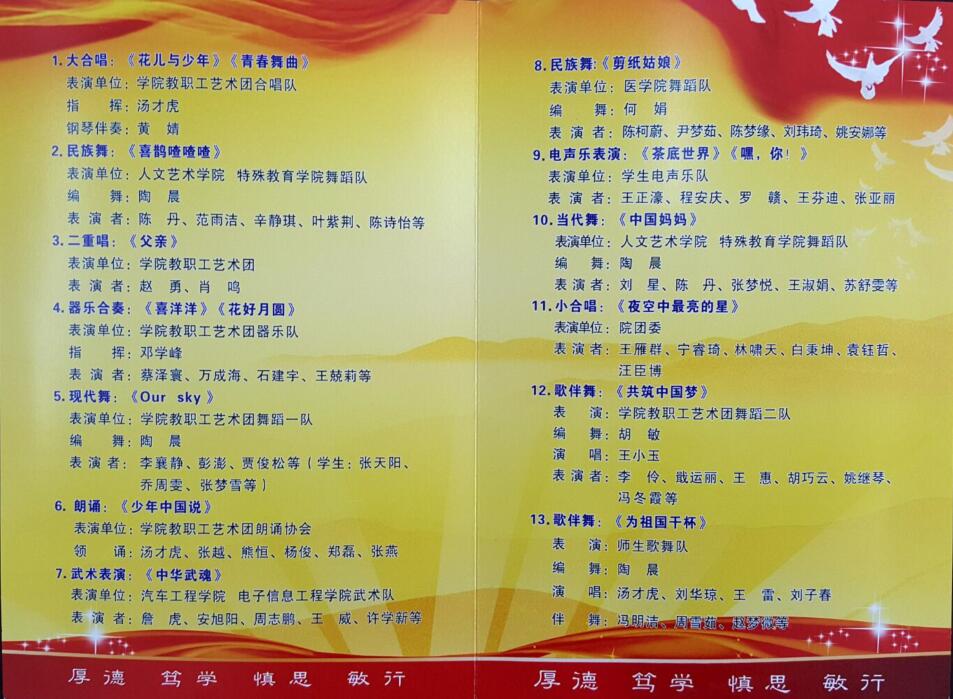 1.大合唱：《花儿与少年》《青春舞曲》
表演单位：学院教职工艺术团合唱队
指 挥：汤才虎
钢琴伴奏：黄 婧
2.民族舞：《喜鹊喳喳喳》
表演单位：人文艺术学院 特殊教育学院舞蹈队
编 舞：陶 晨
表 演 者：陈 丹、范雨洁、辛静琪、叶紫荆、陈诗怡等
3.二重唱：《父亲》
表演单位：学院教职工艺术团
表 演 者：赵 勇、肖 鸣
4.器乐合奏：《喜洋洋》《花好月圆》
表演单位：学院教职工艺术团器乐队
指 挥：邓学峰
表 演 者：蔡泽寰、万成海、石建宇、王兢莉等
5.现代舞：《Our sky》
表演单位：学院教职工艺术团舞蹈一队
编 舞：陶 晨
表 演 者：李襄静、彭澎、贾俊松等（学生：张天阳、
乔周雯、张梦雪等）
6. 朗诵：《少年中国说》
表演单位：学院教职工艺术团朗诵协会
领 诵：汤才虎、张越、熊恒、杨俊、郑磊、张燕
7.武术表演：《中华武魂》
表演单位：汽车工程学院 电子信息工程学院武术队
表 演 者：詹 虎、安旭阳、周志鹏、王 威、许学新等
厚德 笃学 慎思 敏行
8.民族舞：《剪纸姑娘》
表演单位：医学院舞蹈队
编 舞：何 娟
表 演 者：陈柯蔚、尹梦茹、陈梦缘、刘玮琦、姚安娜等
9.电声乐表演：《茶底世界》《嘿，你！》
表演单位：学生电声乐队
表 演 者：王正濠、程安庆、罗 赣、王芬迪、张亚丽
10.当代舞：《中国妈妈》
表演单位：人文艺术学院 特殊教育学院舞蹈队
编 舞：陶 晨
表 演 者：刘 星、陈 丹、张梦悦、王淑娟、苏舒雯等
11.小合唱：《夜空中最亮的星》
表演单位：院团委
表 演 者：王雁群、宁睿琦、林啸天、白秉坤、袁钰哲、
汪臣博
12.歌伴舞：《共筑中国梦》
表 演：学院教职工艺术团舞蹈二队
编 舞：胡 敏
演 唱：王小玉
表 演 者：李 伶、戢运丽、王 惠、胡巧云、姚继琴、
冯冬霞等
13.歌伴舞：《为祖国干杯》
表 演：师生歌舞队
编 舞：陶 晨
演 唱：汤才虎、刘华琼、王 雷、刘子春
伴 舞：冯明洁、周雪茹、赵梦薇等
厚德 笃学 慎思 敏行